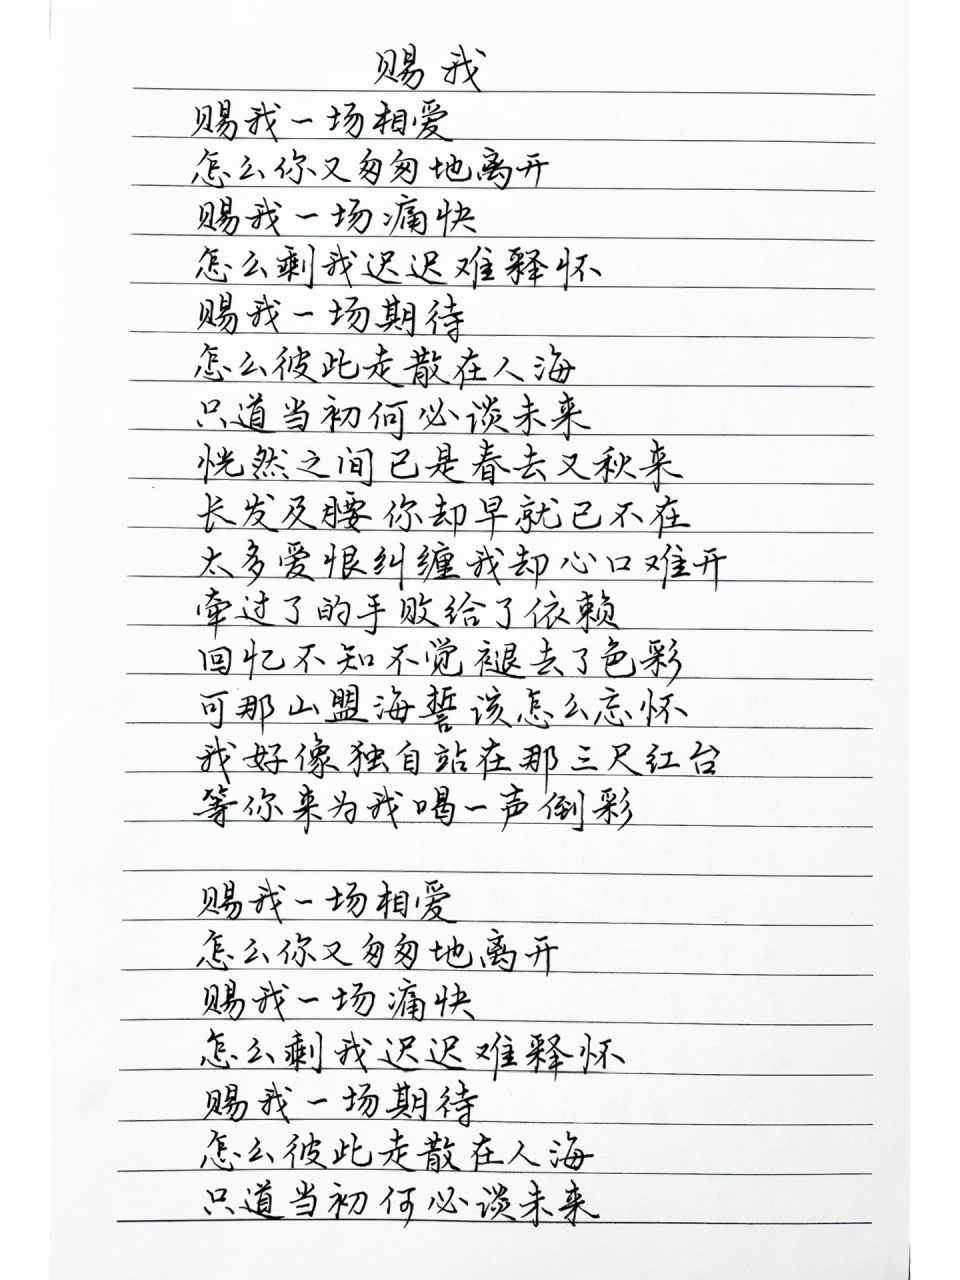 赐我
赐我一场相爱
怎么你又匆匆地离开
赐我一场痛快
怎么剩我迟迟难释怀
赐我一场期待
怎么彼此走散在人海
只道当初何必谈未来
恍然之间已是春去又秋来
长发及腰你却早就已不在
太多爱恨纠缠我却心口难开
牵过了的手败给了依赖
回忆不知不觉褪去了色彩
可那山盟海誓该怎么忘怀
我好像独自站在那三尺红台
等你来为我喝一声倒彩
赐我一场相爱
怎么你又匆匆地离开
赐我一场痛快
怎么剩我迟迟难释怀
赐我一场期待
怎么彼此走散在人海
只道当初何必谈未来